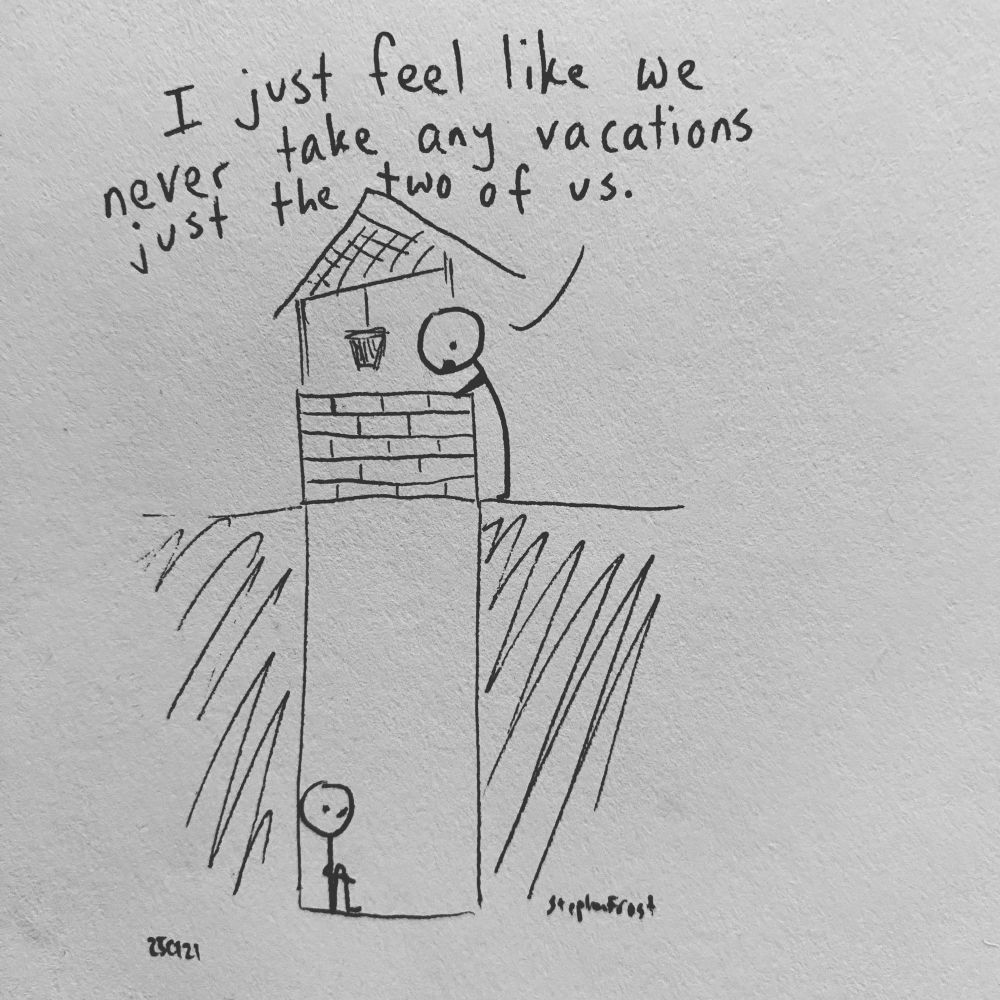 I just feel like we
never take any vacations
just the two of us.
StephenFrost
250121